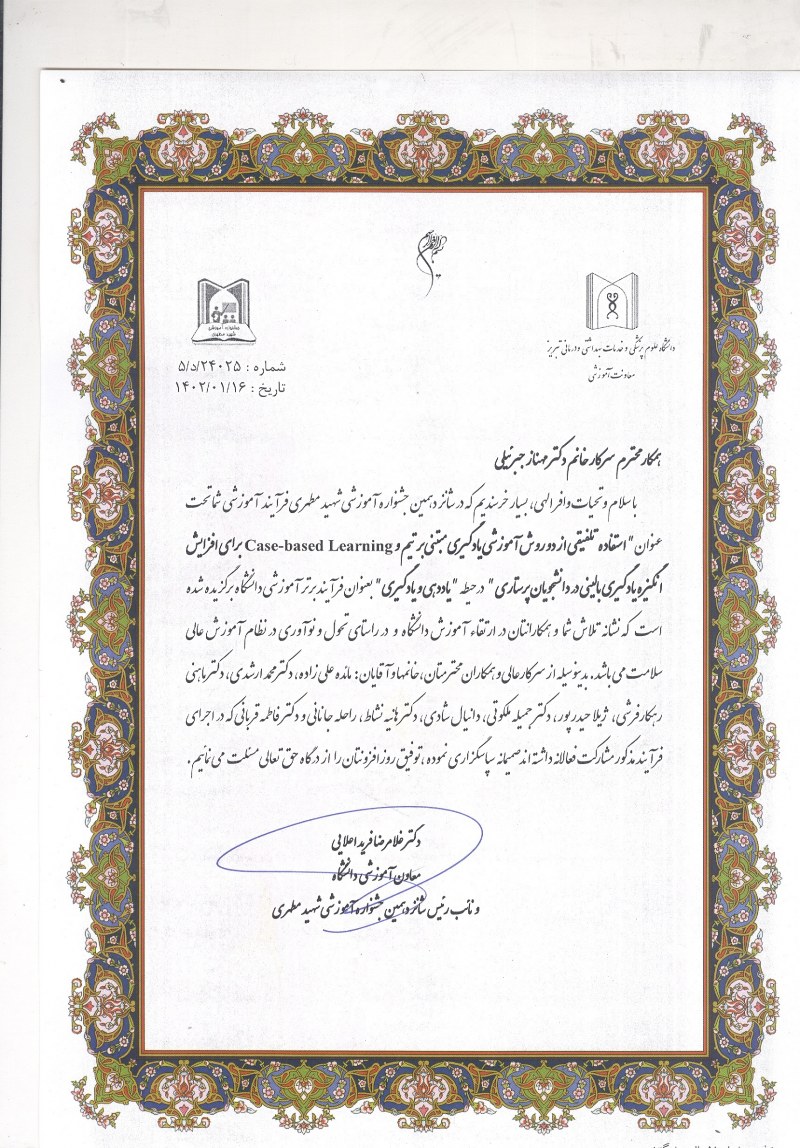 جشنواره آموزشی
شهید مطهری
دانشگاه علوم پزشکی و خدمات بهداشتی و درمانی تبریز
معاونت آموزشی
شماره : ۵/د/۲۴۰۲۵
تاریخ : ۱۴۰۲/۰۱/۱۶
همکار محترم سرکار خانم دکتر مهناز جبرئیلی
با سلام و تحیات وافر الهی، بسیار خرسندیم که در شانزدهمین جشنواره آموزشی شهید مطهری فرآیند آموزشی شما تحت
عنوان "استفاده تلفیقی از دو روش آموزشی یادگیری مبتنی بر تیم و Case-based Learning برای افزایش
انگیزه یادگیری بالینی در دانشجویان پرستاری" در حیطه "یاددهی و یادگیری" بعنوان فرآیند برتر آموزشی دانشگاه برگزیده شده
است که نشانه تلاش شما و همکارانتان در ارتقاء آموزش دانشگاه و در راستای تحول و نوآوری در نظام آموزش عالی
سلامت می باشد. بدینوسیله از سرکار عالی و همکاران محترمتان، خانمها و آقایان: مائده علی زاده، دکتر محمد ارشدی، دکتر ماهنی
رهکار فرشی، ژیلا حیدرپور، دکتر جمیله ملکوتی، دانیال شادی، دکتر هانیه نشاط، راحله جانانی و دکتر فاطمه قربانی که در اجرای
فرآیند مذکور مشارکت فعالانه داشته اند صمیمانه سپاسگزاری نموده، توفیق روز افزونتان را از درگاه حق تعالی مسئلت می نمائیم.
دکتر غلامرضا فرید اعلایی
معاون آموزشی دانشگاه
و نائب رئیس شانزدهمین جشنواره آموزشی شهید مطهری